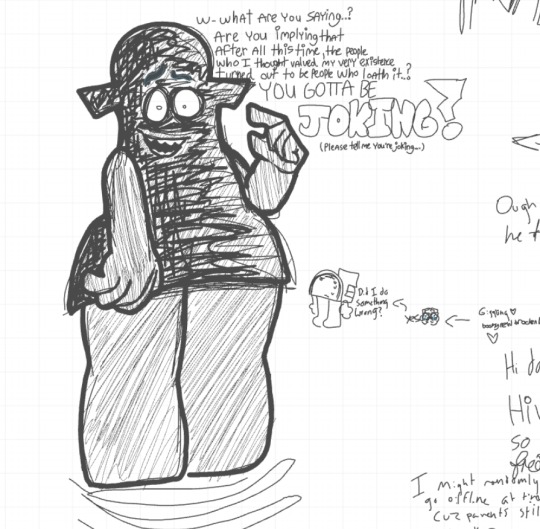 W-what are you saying..?
Are you implying that
After all this time, the people
who I thought valued my very existence
turned out to be people who loath it..?
YOU GOTTA BE
JOKING?
(Please tell me you're joking...)
Did I do
something
wrong?
yes
Giggling
Ough
he
Hi
Hi
so
I might randomly
go offline at
cuz parents still